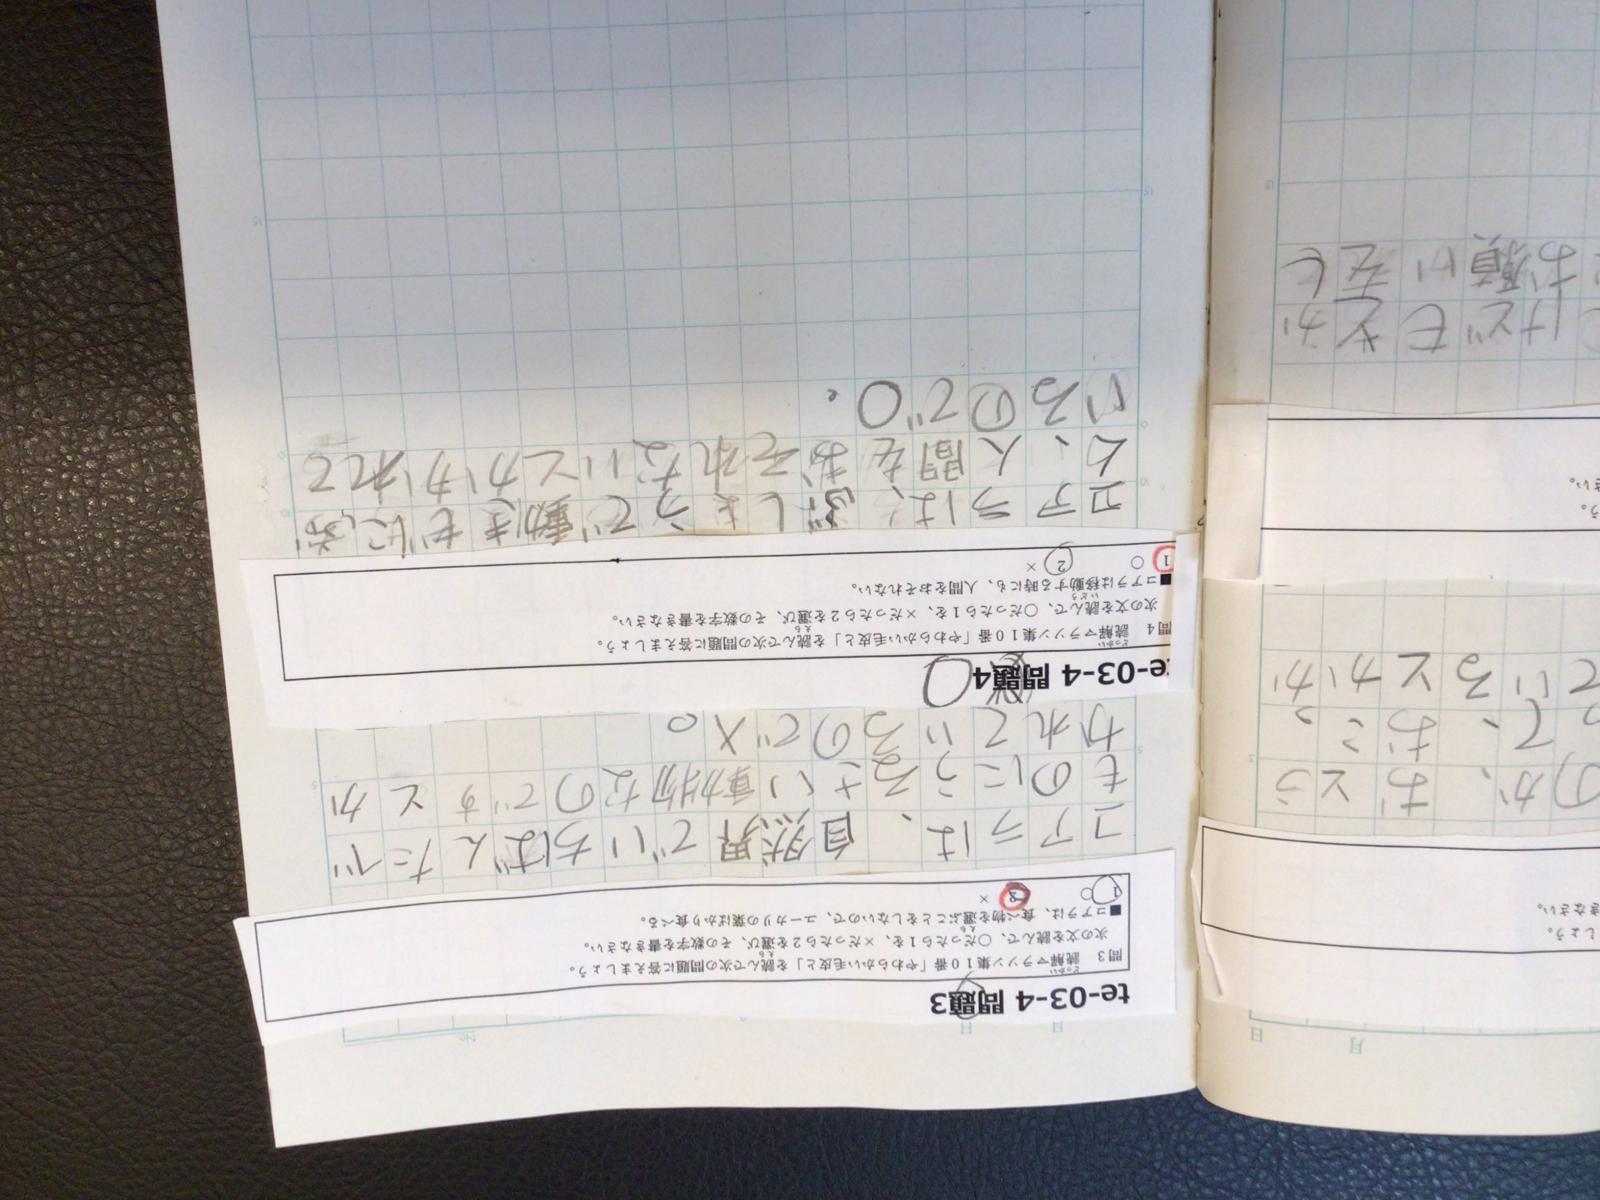 月 日
なさい。
のか、おとう
て、おこっ
ているとかか
う。
さい。
お願いをし
No.
月 日
te-03-4 問題3
問3 読解マラソン集10番「やわらかい毛皮と」を読んで次の問題に答えましょう。
次の文を読んで、○だったら1を、×だったら2を選び、その数字を書きなさい。
■コアラは、食べ物を選ぶことをしないので、ユーカリの葉ばかり食べる。
1 ○ 2 ×
コアラは、自然界でいちばんたべ
ものにうるさい動物なのですとか
かれているので×。
te-03-4 問題4
問4 読解マラソン集10番「やわらかい毛皮と」を読んで次の問題に答えましょう。
次の文を読んで、○だったら1を、×だったら2を選び、その数字を書きなさい。
■コアラは移動する時にも、人間をおそれない。
1 ○ 2 ×
コアラは、ぶしょうで動きもにぶ
く、人間をおそれないとかかれて
いるので○。